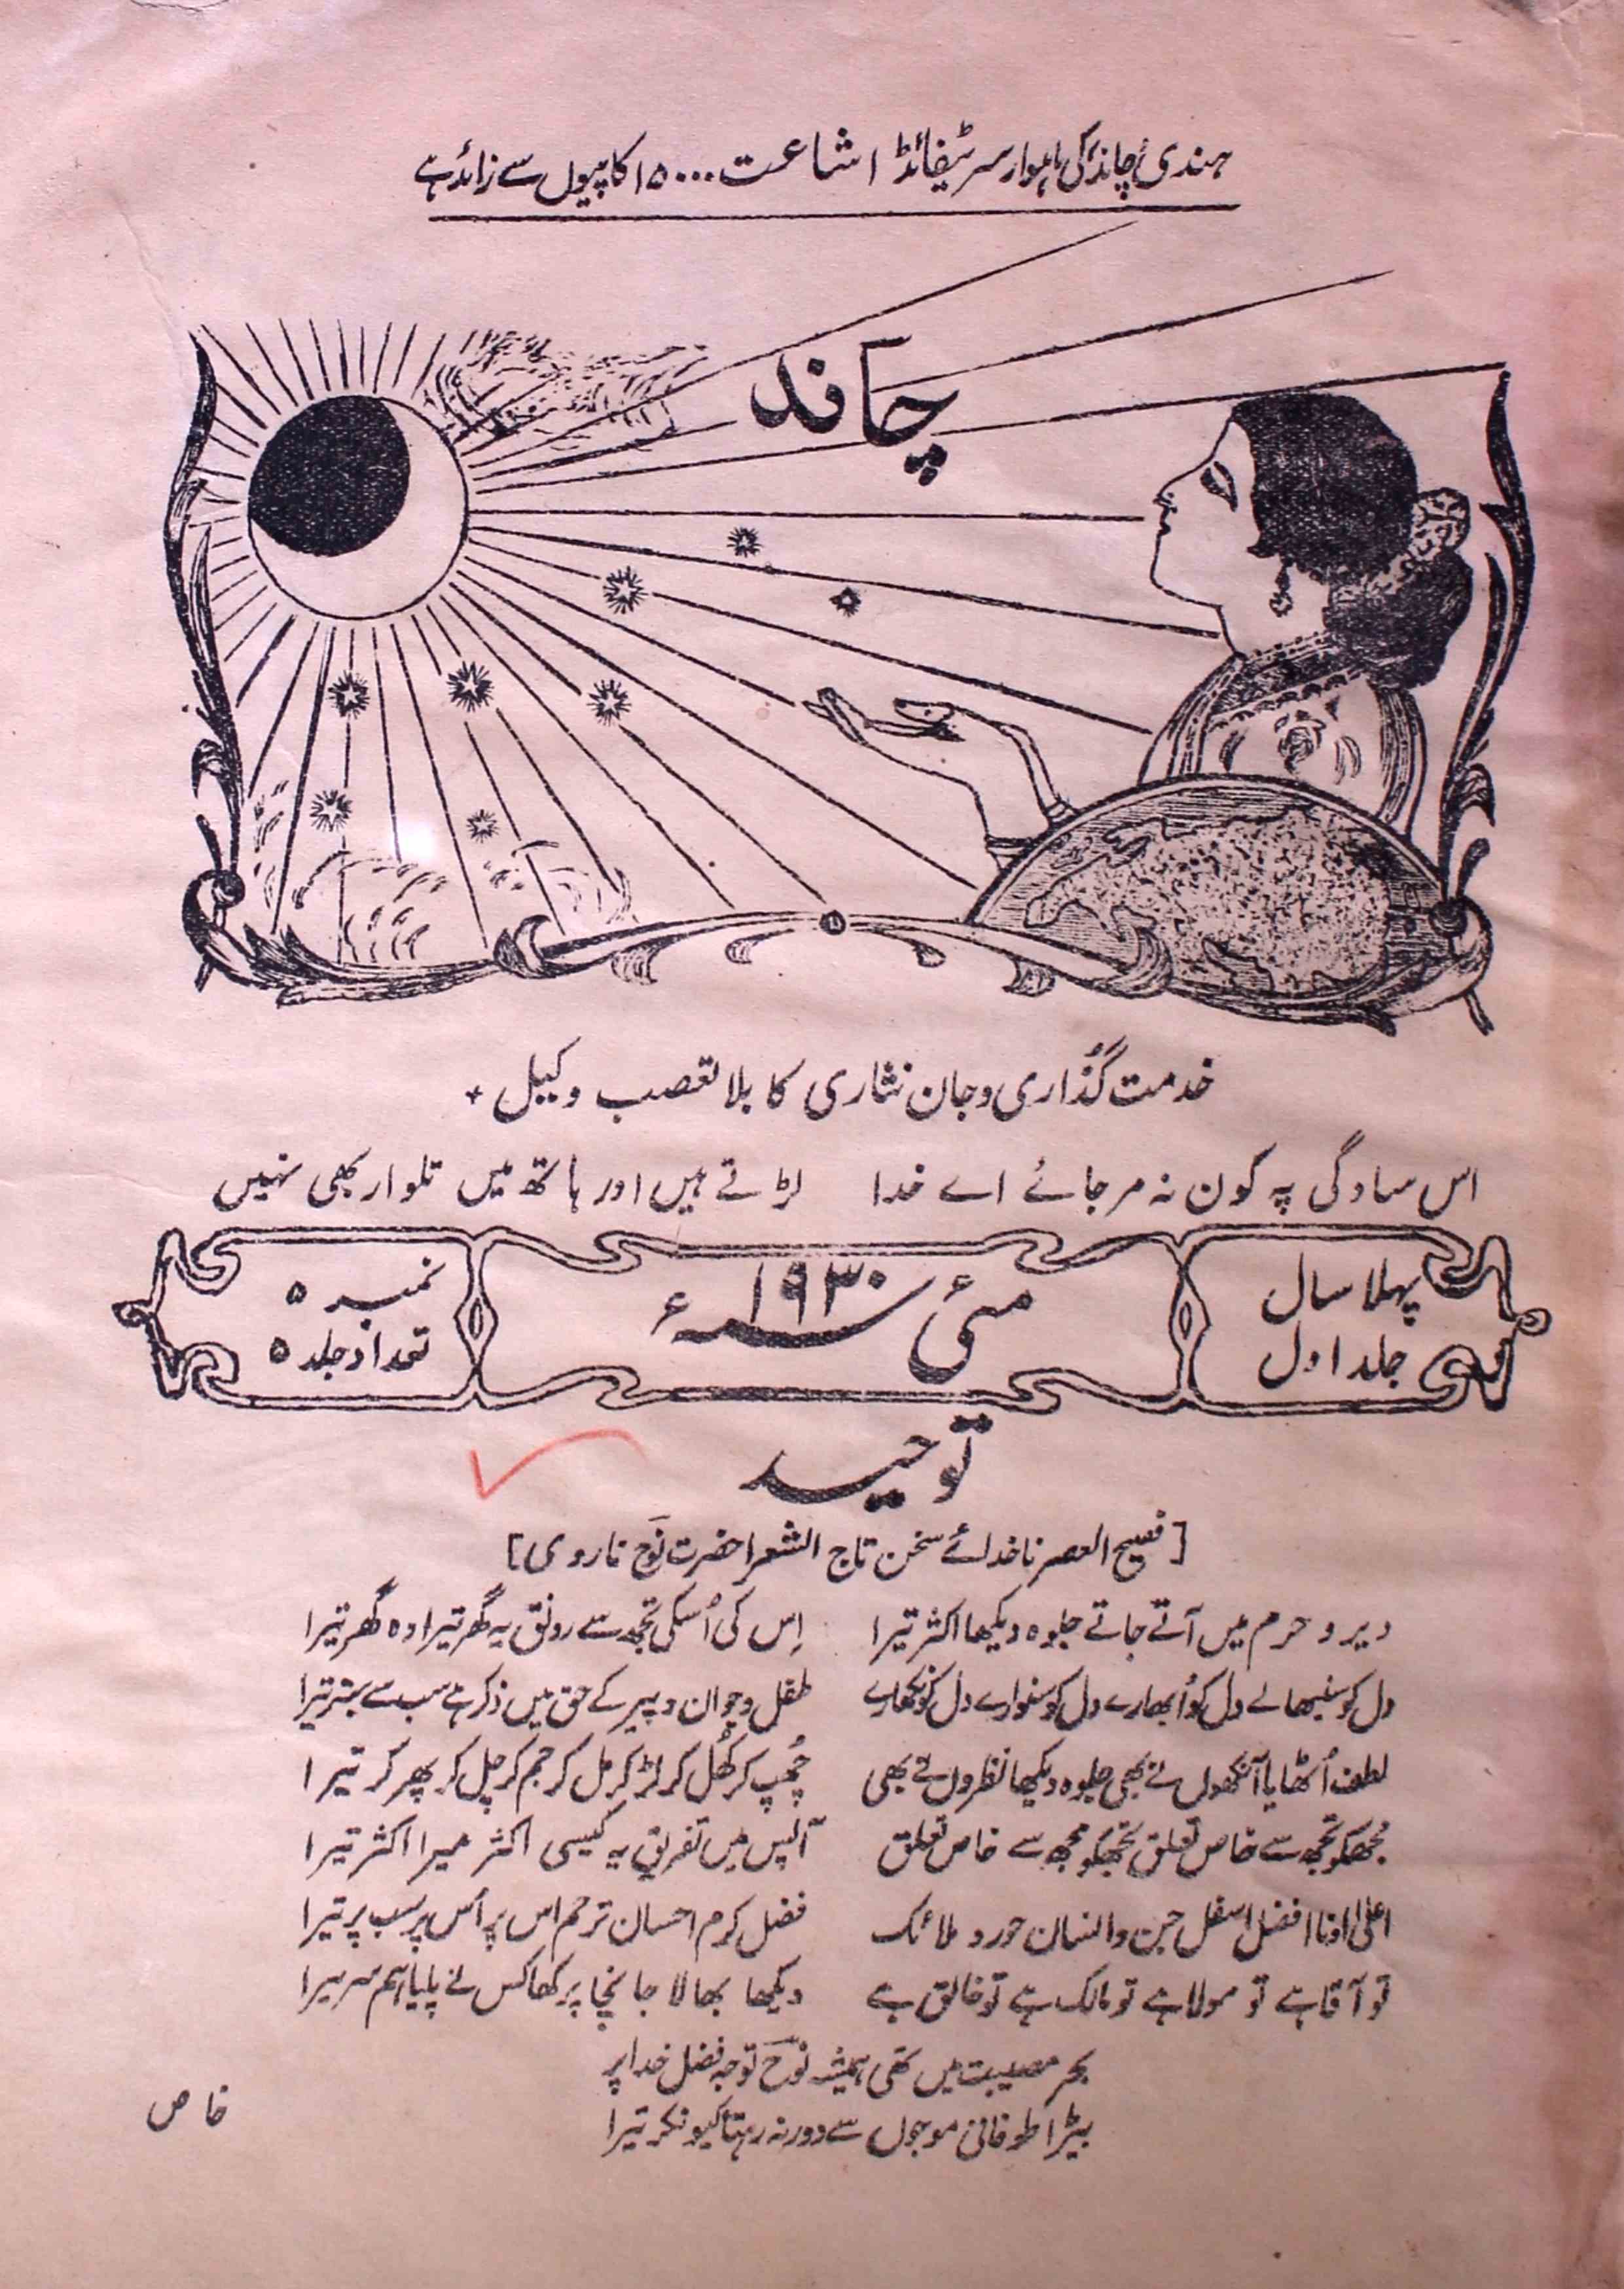 ہندی چاند کی ماہوار سرٹیفائڈ اشاعت ۱۵۰۰۰ کاپیوں سے زائد ہے
چاند
خدمت گُذاری و جان نثاری کا بلا تعصب وکیل +
اس سادگی پہ کون نہ مر جائے اے خدا لڑتے ہیں اور ہاتھ میں تلوار بھی نہیں
پہلا سال
جلد اول
مئی ۱۹۳۰ء
نمبر ۵
تعداد جلد ۵
توحید
[فصیح العصر ناخدائے سخن تاج الشعرا حضرت نوحؔ ناروی]
دیر و حرم میں آتے جاتے جلوہ دیکھا اکثر تیرا اِس کی اُسکی تجھ سے رونق یہ گھر تیرا وہ گھر تیرا
دل کو سنبھالے دل کو اُبھارے دل کو سنوارے دل کو نکھارے طفل و جوان و پیر کے حق میں ذکر ہے سب سے بہتر تیرا
لطف اُٹھایا آنکھوں نے بھی جلوہ دیکھا نظروں نے بھی چُھپ کر کُھل کر لڑ کر مل کر جم کر چل کر پھر کر تیرا
مُجھکو تجھ سے خاص تعلق تجھکو مجھ سے خاص تعلق آپس میں تفریق یہ کیسی اکثر میرا اکثر تیرا
اعلیٰ ادنا افضل اسفل جن و انسان حور و ملائک فضل کرم احسان ترحم اس پر اُس پر سب پر تیرا
تو آقا ہے تو مولا ہے تو مالک ہے تو خالق ہے دیکھا بھالا جانچا پرکھا کس نے پایا ہمسر تیرا
بحر مصیبت میں تھی ہمیشہ نوحؔ توجہ فضل خدا پر
بیڑا طوفانی موجوں سے دور نہ رہتا کیونکر تیرا
خاص